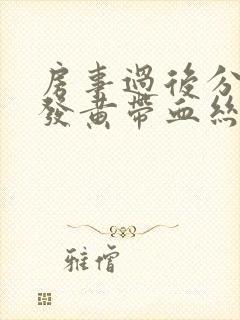 房事過後分
發黃帶血絲
雅僧